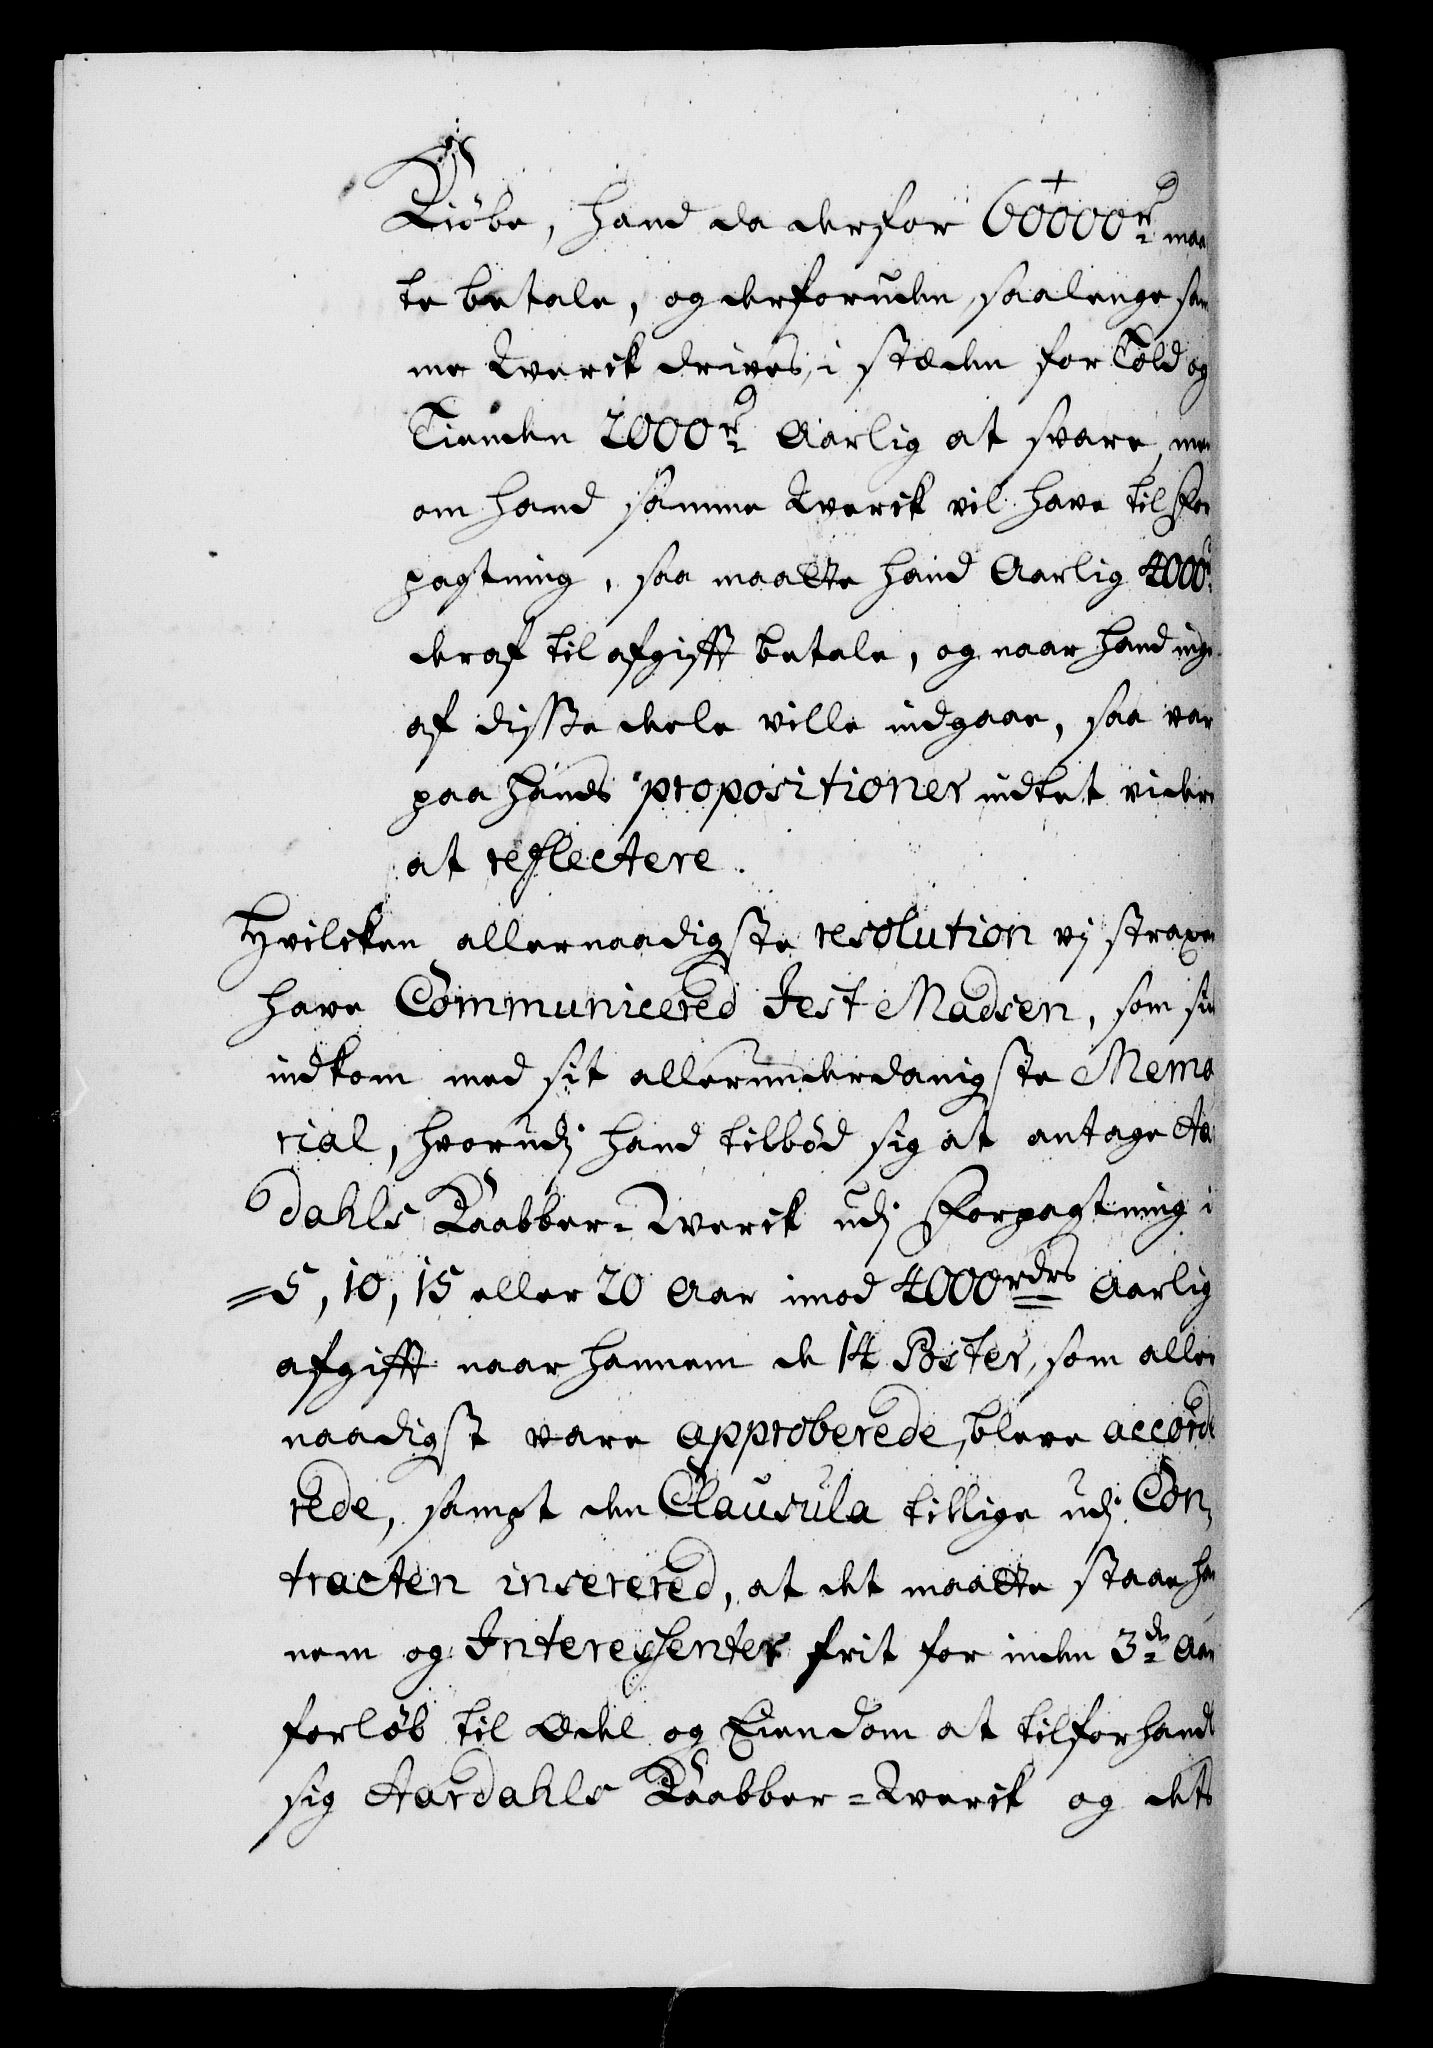 Kiöbe, hand da derfor 60000 rd maa
te betale, og derforuden, saalenge sam
me Kverck drives, i stæden for Told og
Tienden 2000 rd Aarlig at svare, men
om hand samme Kverck vil have til For
pagtning, saa maatte hand Aarlig 4000 r
deraf til afgifft betale, og naar hand inge
af disse dele ville indgaae, saa var
paa hands propositioner indtet videre
at reflectere.
Hvilcken allernaadigste resolution vj straxen
have Communicered Jest Madsen, som si
indkom med sit allerunderdanigste Memo
rial, hvorudj hand tilbød sig at antage Aar
dahls Kaabber-Kverck udj Forpagtning i
=5, 10, 15 eller 20 Aar imod 4000 rdrs Aarlig
afgifft naar hannem de 14 Poster, som aller
naadigst vare approberede, bleve accorde
rede, sampt den Clausula tillige udj Con,
tracten inserered, at det maatte staae han
nem og Interessenter frit for inden 3de Aar
forløb til Odel og Eiendom at tilforhandl
sig Aardahls Kaabber=Kverck og dets